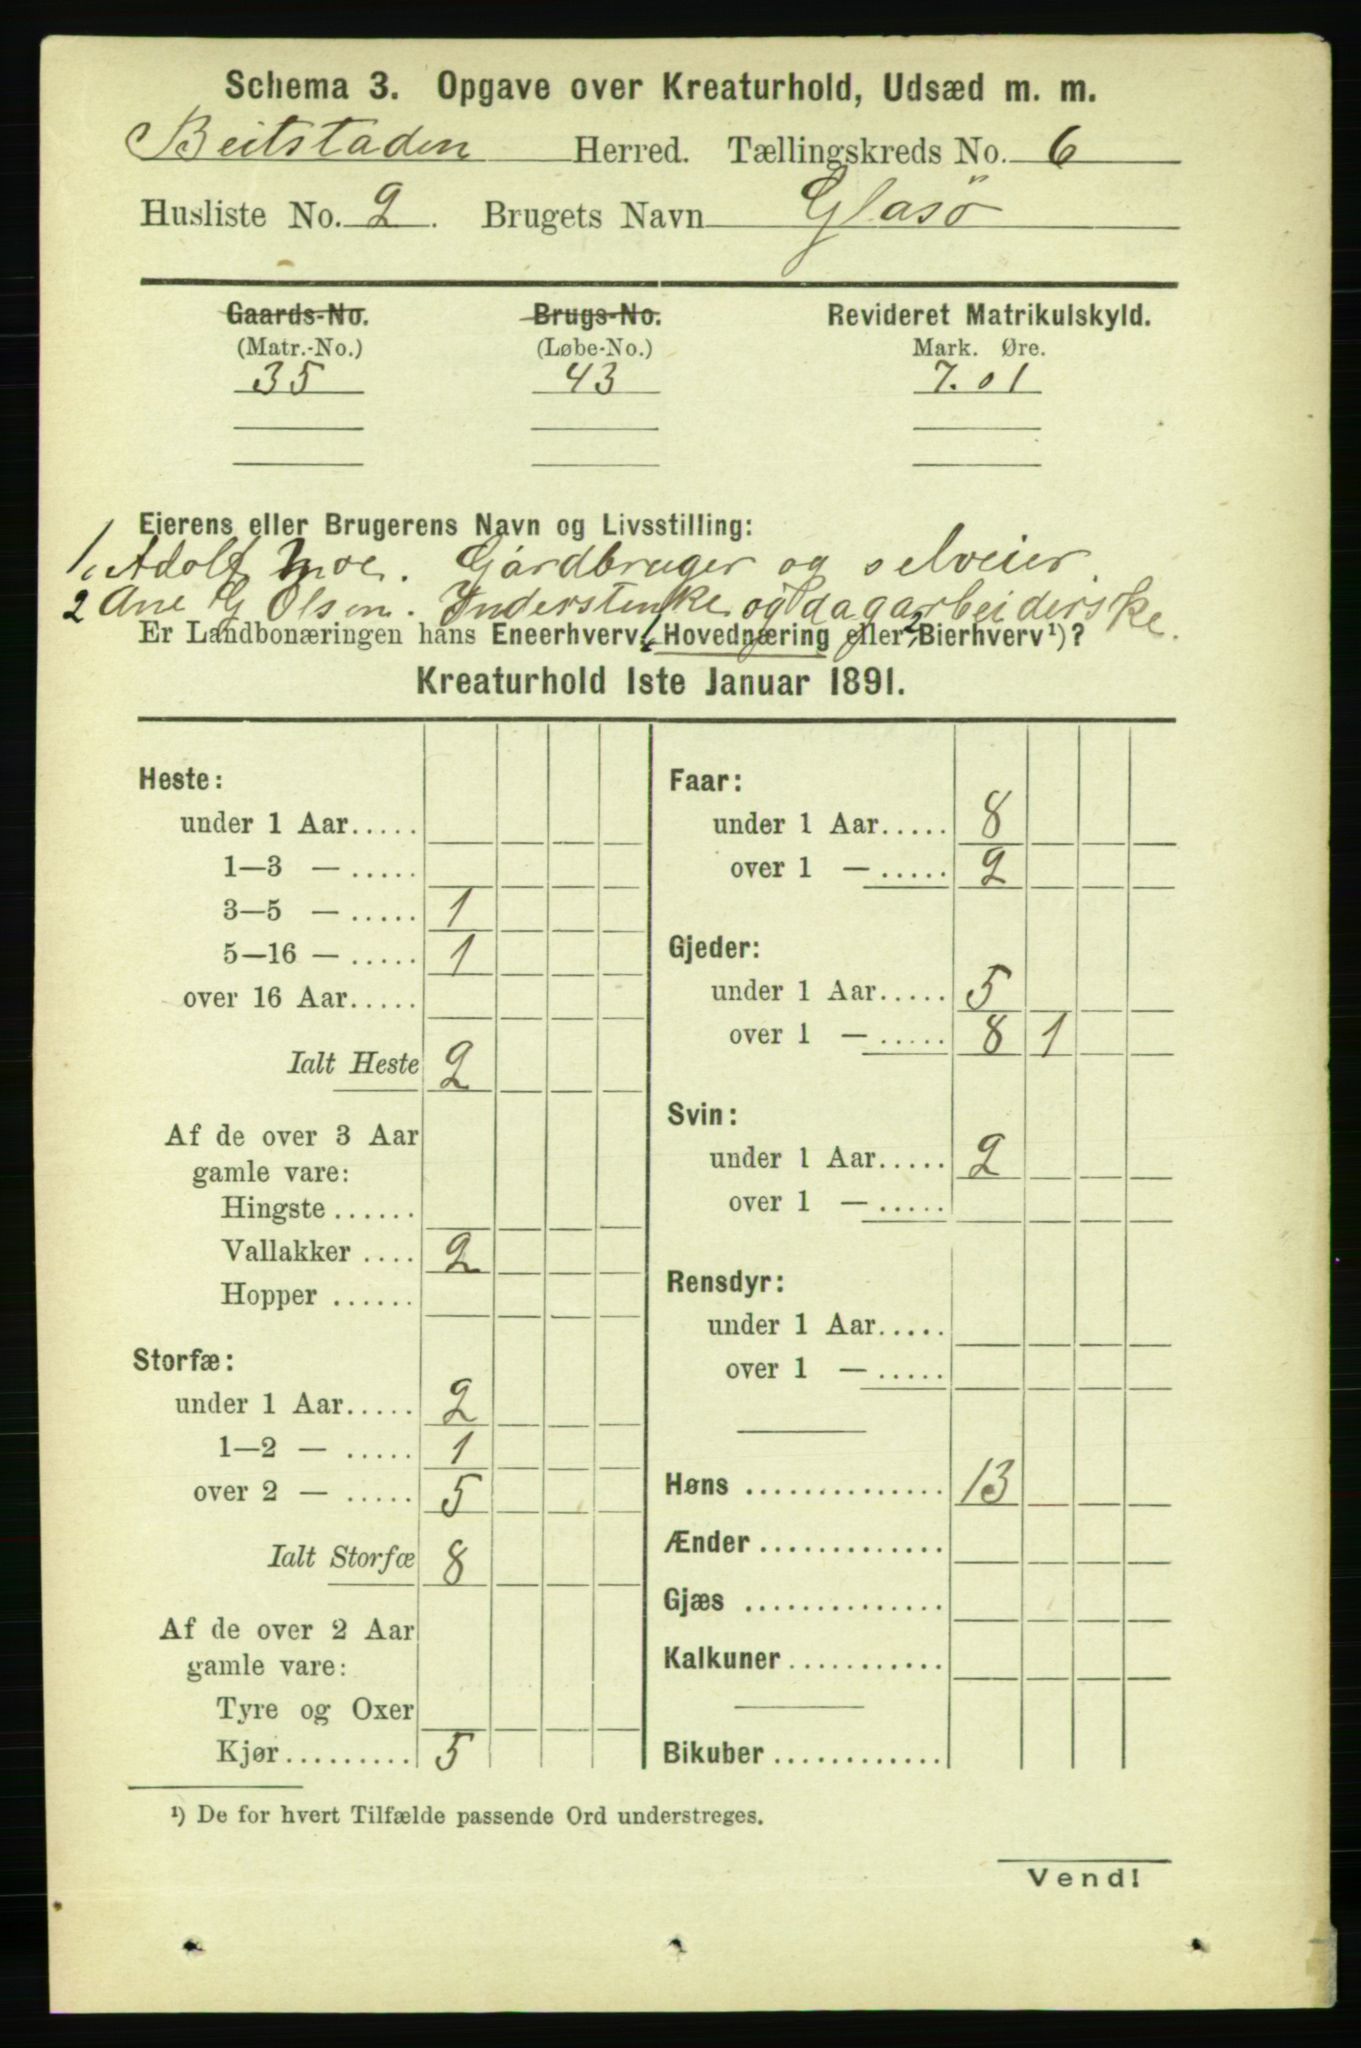 Schema 3. Opgave over Kreaturhold, Udsæd m. m.
Beitstaden Herred. Tællingskreds No. 6
Husliste No. 2. Brugets Navn Glasö
Gaards-No. Brugs-No. Revideret Matrikulskyld.
(Matr.-No.) (Løbe-No.) Mark. Øre.
35 43 7.01
Eierens eller Brugerens Navn og Livsstilling:
1, Adolf Moe. Gårdbruger og selveier.
2 Ane G Olsen. Inderstenke og dagarbeiderske.
Er Landbonæringen hans Eneerhverv, 1, Hovednæring eller 2, Bierhverv¹)?
Kreaturhold 1ste Januar 1891.
Heste:
under 1 Aar.....
1—3 — .....
3—5 — ..... 1
5—16 — ..... 1
over 16 Aar.....
Ialt Heste 2
Af de over 3 Aar
gamle vare:
Hingste ......
Vallakker .... 2
Hopper ......
Storfæ:
under 1 Aar..... 2
1—2 — ..... 1
over 2 — ..... 5
Ialt Storfæ 8
Af de over 2 Aar
gamle vare:
Tyre og Oxer
Kjør......... 5
Faar:
under 1 Aar..... 8
over 1 — ..... 2
Gjeder:
under 1 Aar..... 5
over 1 — ..... 8 1
Svin:
under 1 Aar..... 2
over 1 — .....
Rensdyr:
under 1 Aar.....
over 1 — .....
Høns .............. 13
Ænder .............
Gjæs ..............
Kalkuner ...........
Bikuber .............
¹) De for hvert Tilfælde passende Ord understreges.
Vend!